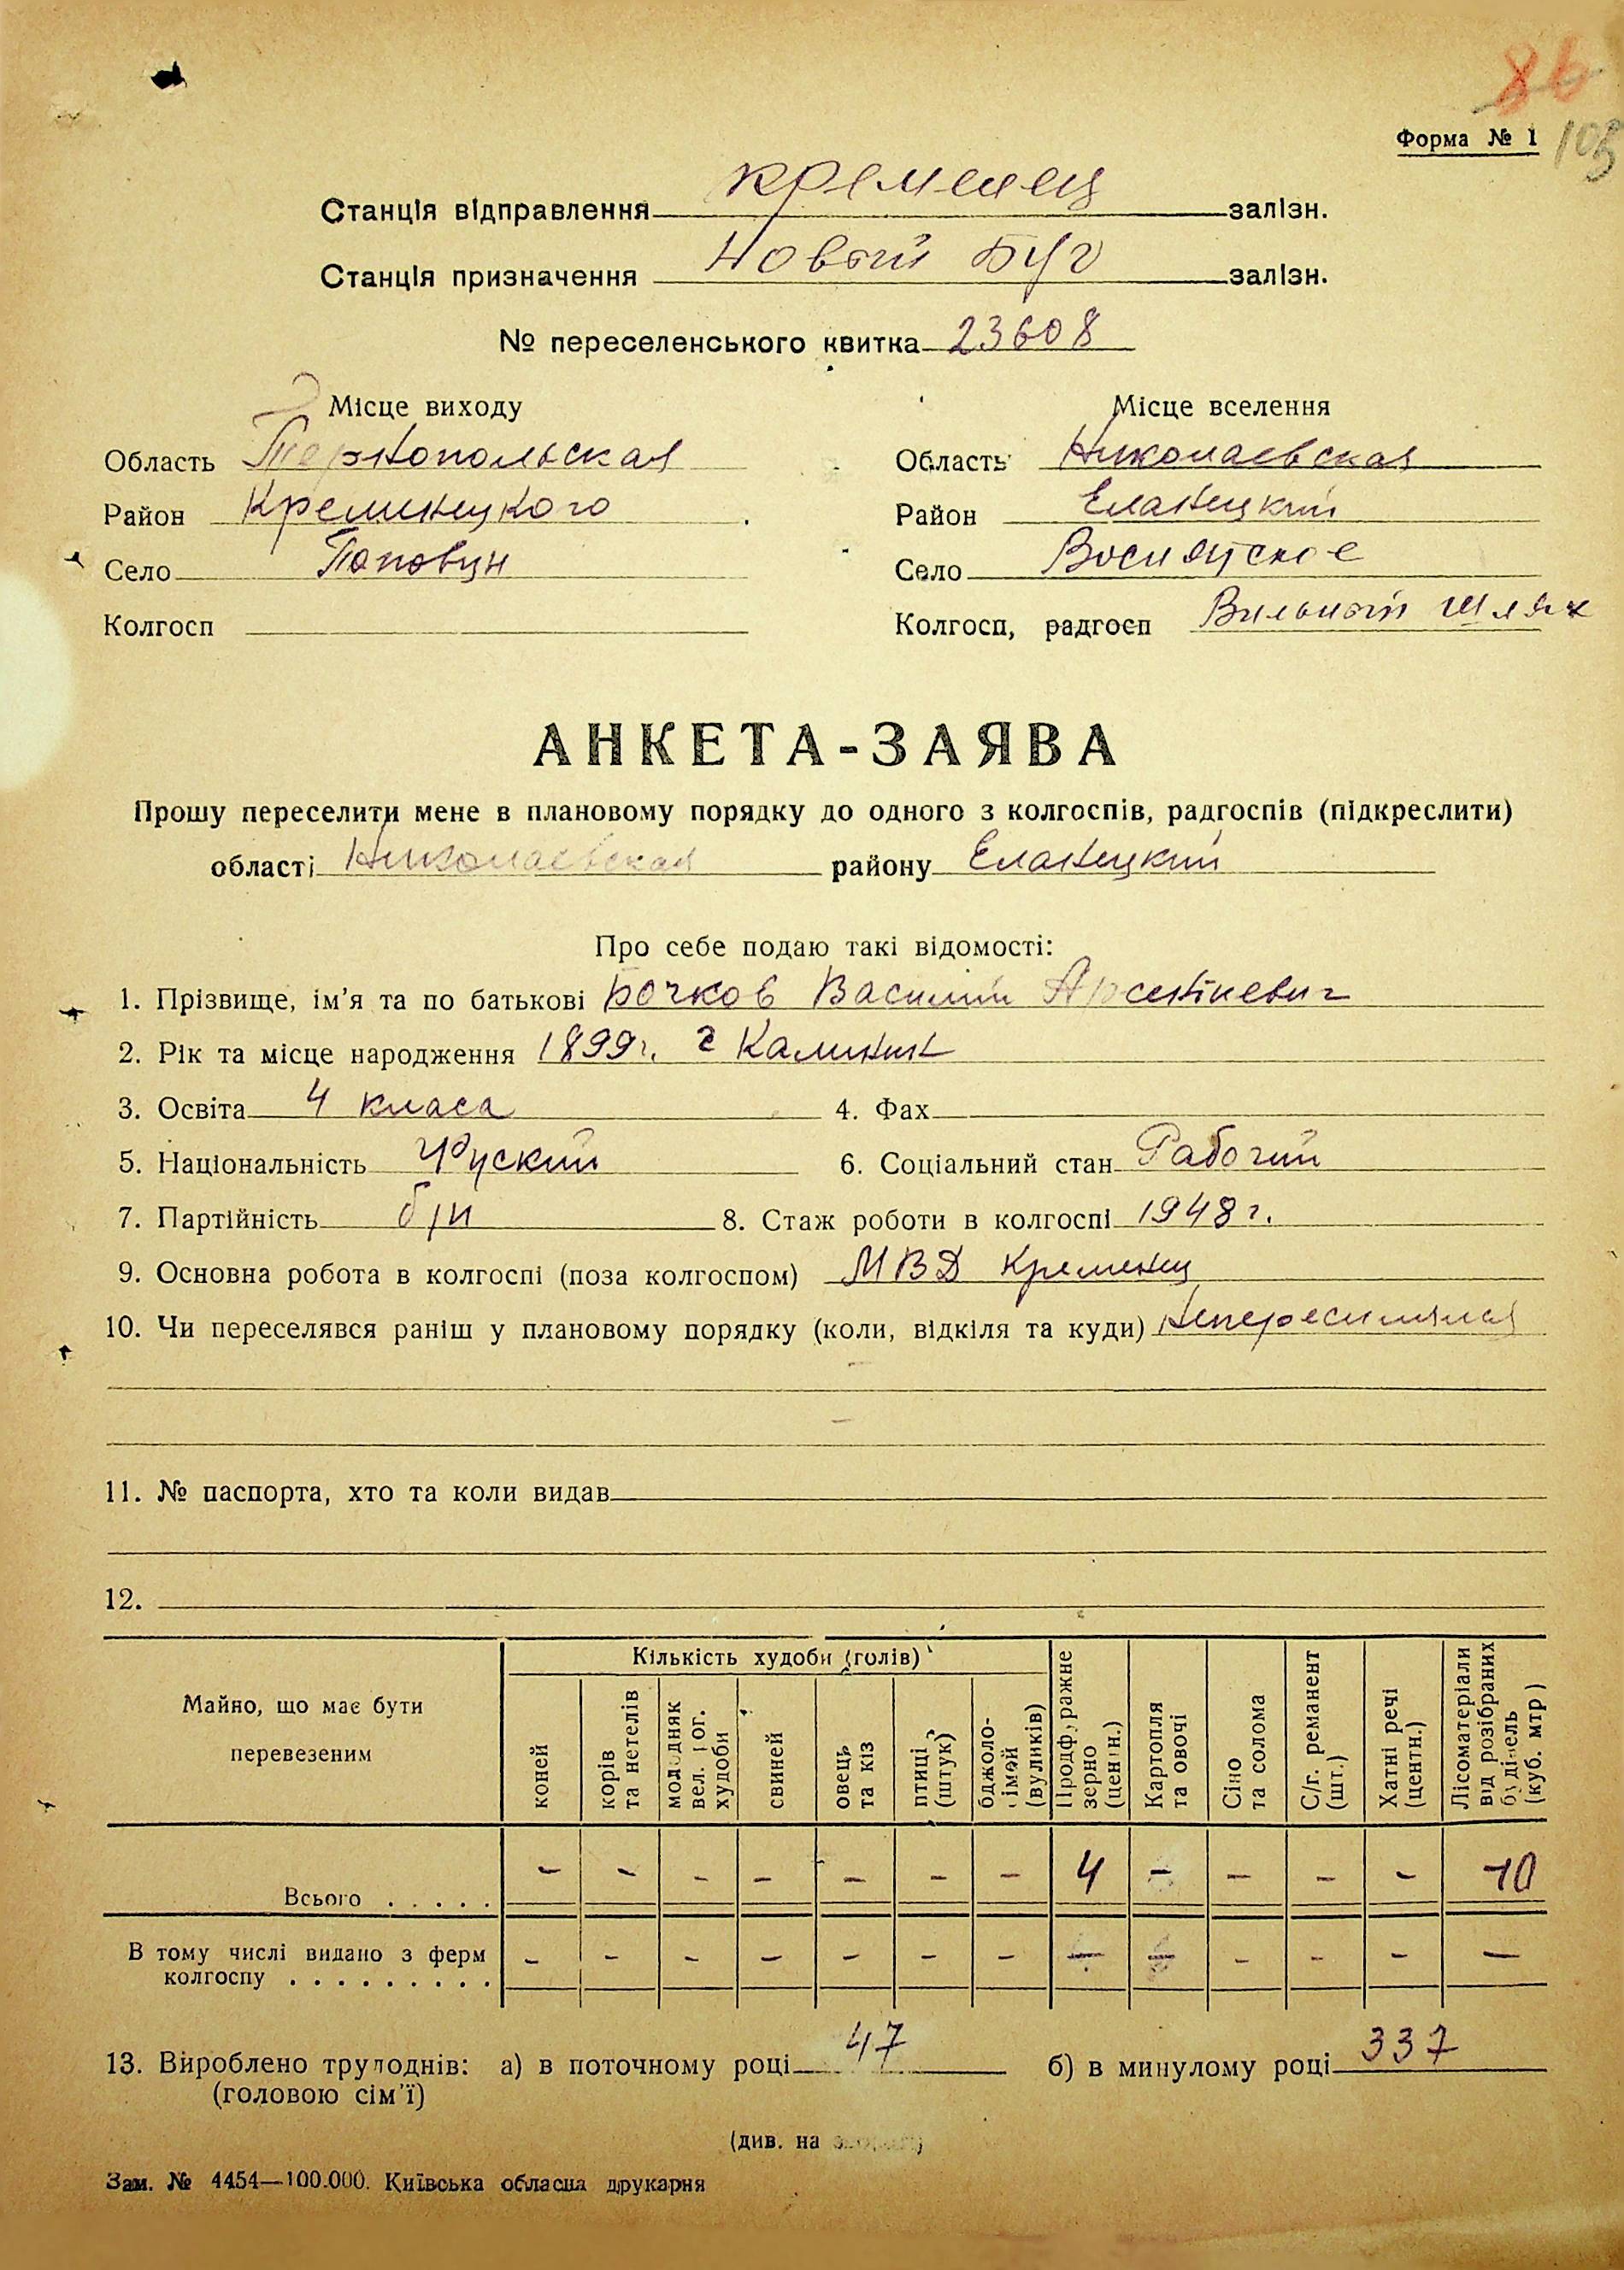 86
Форма № 1 105
Станція відправлення Кременец залізн.
Станція призначення Новый Буг залізн.
№ переселенського квитка 23608
Місце виходу Місце вселення
Область Тернопольская Область Николаевская
Район Креминецкого Район Еланецкий
Село Поповци Село Восиятское
Колгосп Колгосп, радгосп Вильный шлях
АНКЕТА-ЗАЯВА
Прошу переселити мене в плановому порядку до одного з колгоспів, радгоспів (підкреслити)
області Николаевская району Еланецкий
Про себе подаю такі відомості:
1. Прізвище, ім'я та по батькові Бочков Василий Арсентиевич
2. Рік та місце народження 1899г. г Калинин
3. Освіта 4 класа 4. Фах
5. Національність Руский 6. Соціальний стан Рабочий
7. Партійність б/п 8. Стаж роботи в колгоспі 1948 г.
9. Основна робота в колгоспі (поза колгоспом) МВД Кременец
10. Чи переселявся раніш у плановому порядку (коли, відкіля та куди)
11. № паспорта, хто та коли видав
12.
Майно, що має бути перевезеним
Кількість худоби (голів)
коней
корів та нетелів
молодняк вел. рог. худоби
свиней
овець та кіз
птиці (штук)
бджоло-сімей (вуликів)
Продфуражне зерно (центн.)
Картопля та овочі
Сіно та солома
С/г. реманент (шт.)
Хатні речі (центн.)
Лісоматеріали від розібраних будівель (куб. мтр)
Всього . . . . . – – – – – – – 4 – – – – 10
В тому числі видано з ферм
колгоспу . . . . . . . . . – – – – – – – – – – – – –
13. Вироблено трудоднів: а) в поточному році 47 б) в минулому році 337
(головою сім'ї)
(див. на звороті)
Зам. № 4454—100.000. Київська обласна друкарня